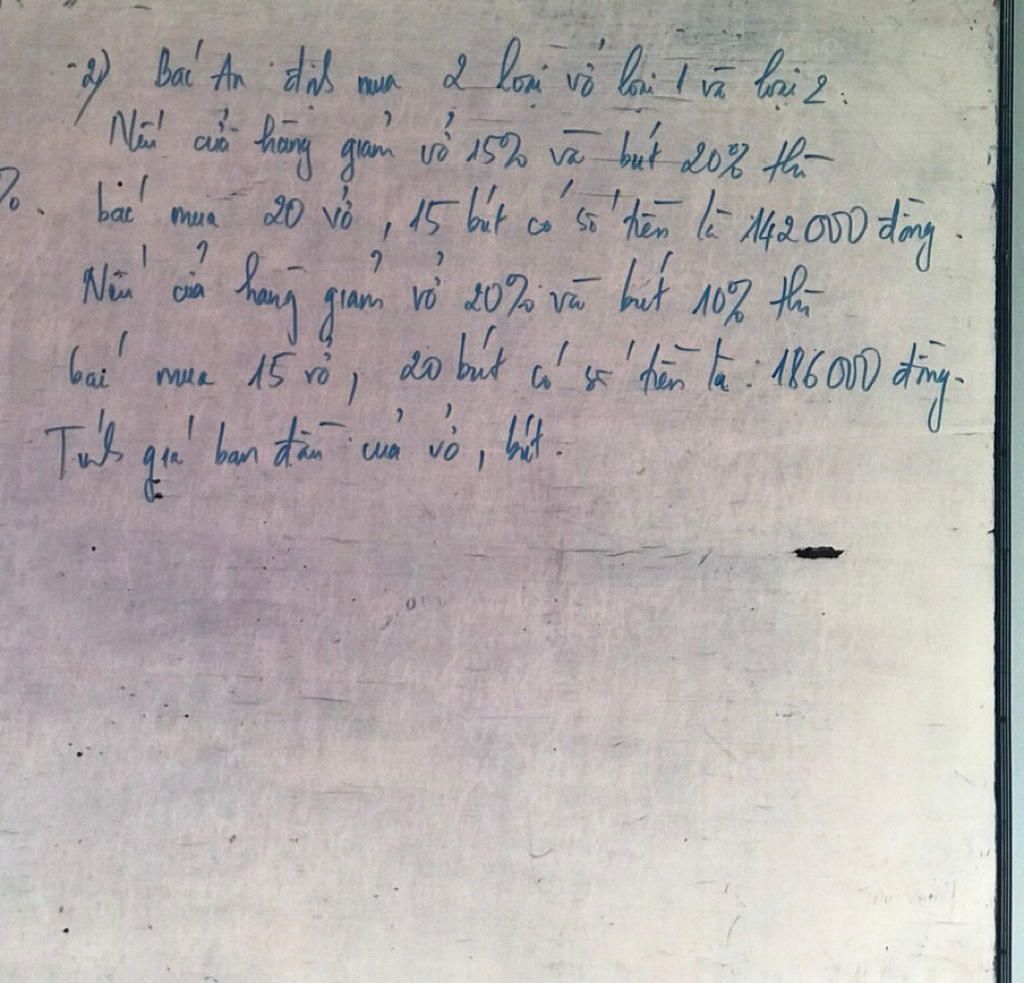 2) Bác An định mua 2 loại vở loại 1 và loại 2.
Nếu cửa hàng giảm vở 15% và bút 20% thì
%. bác mua 20 vở, 15 bút có số tiền là 142000 đồng.
Nếu cửa hàng giảm vở 20% và bút 10% thì
bác mua 15 vở, 20 bút có số tiền là: 186000 đồng.
Tính giá ban đầu của vở, bút.